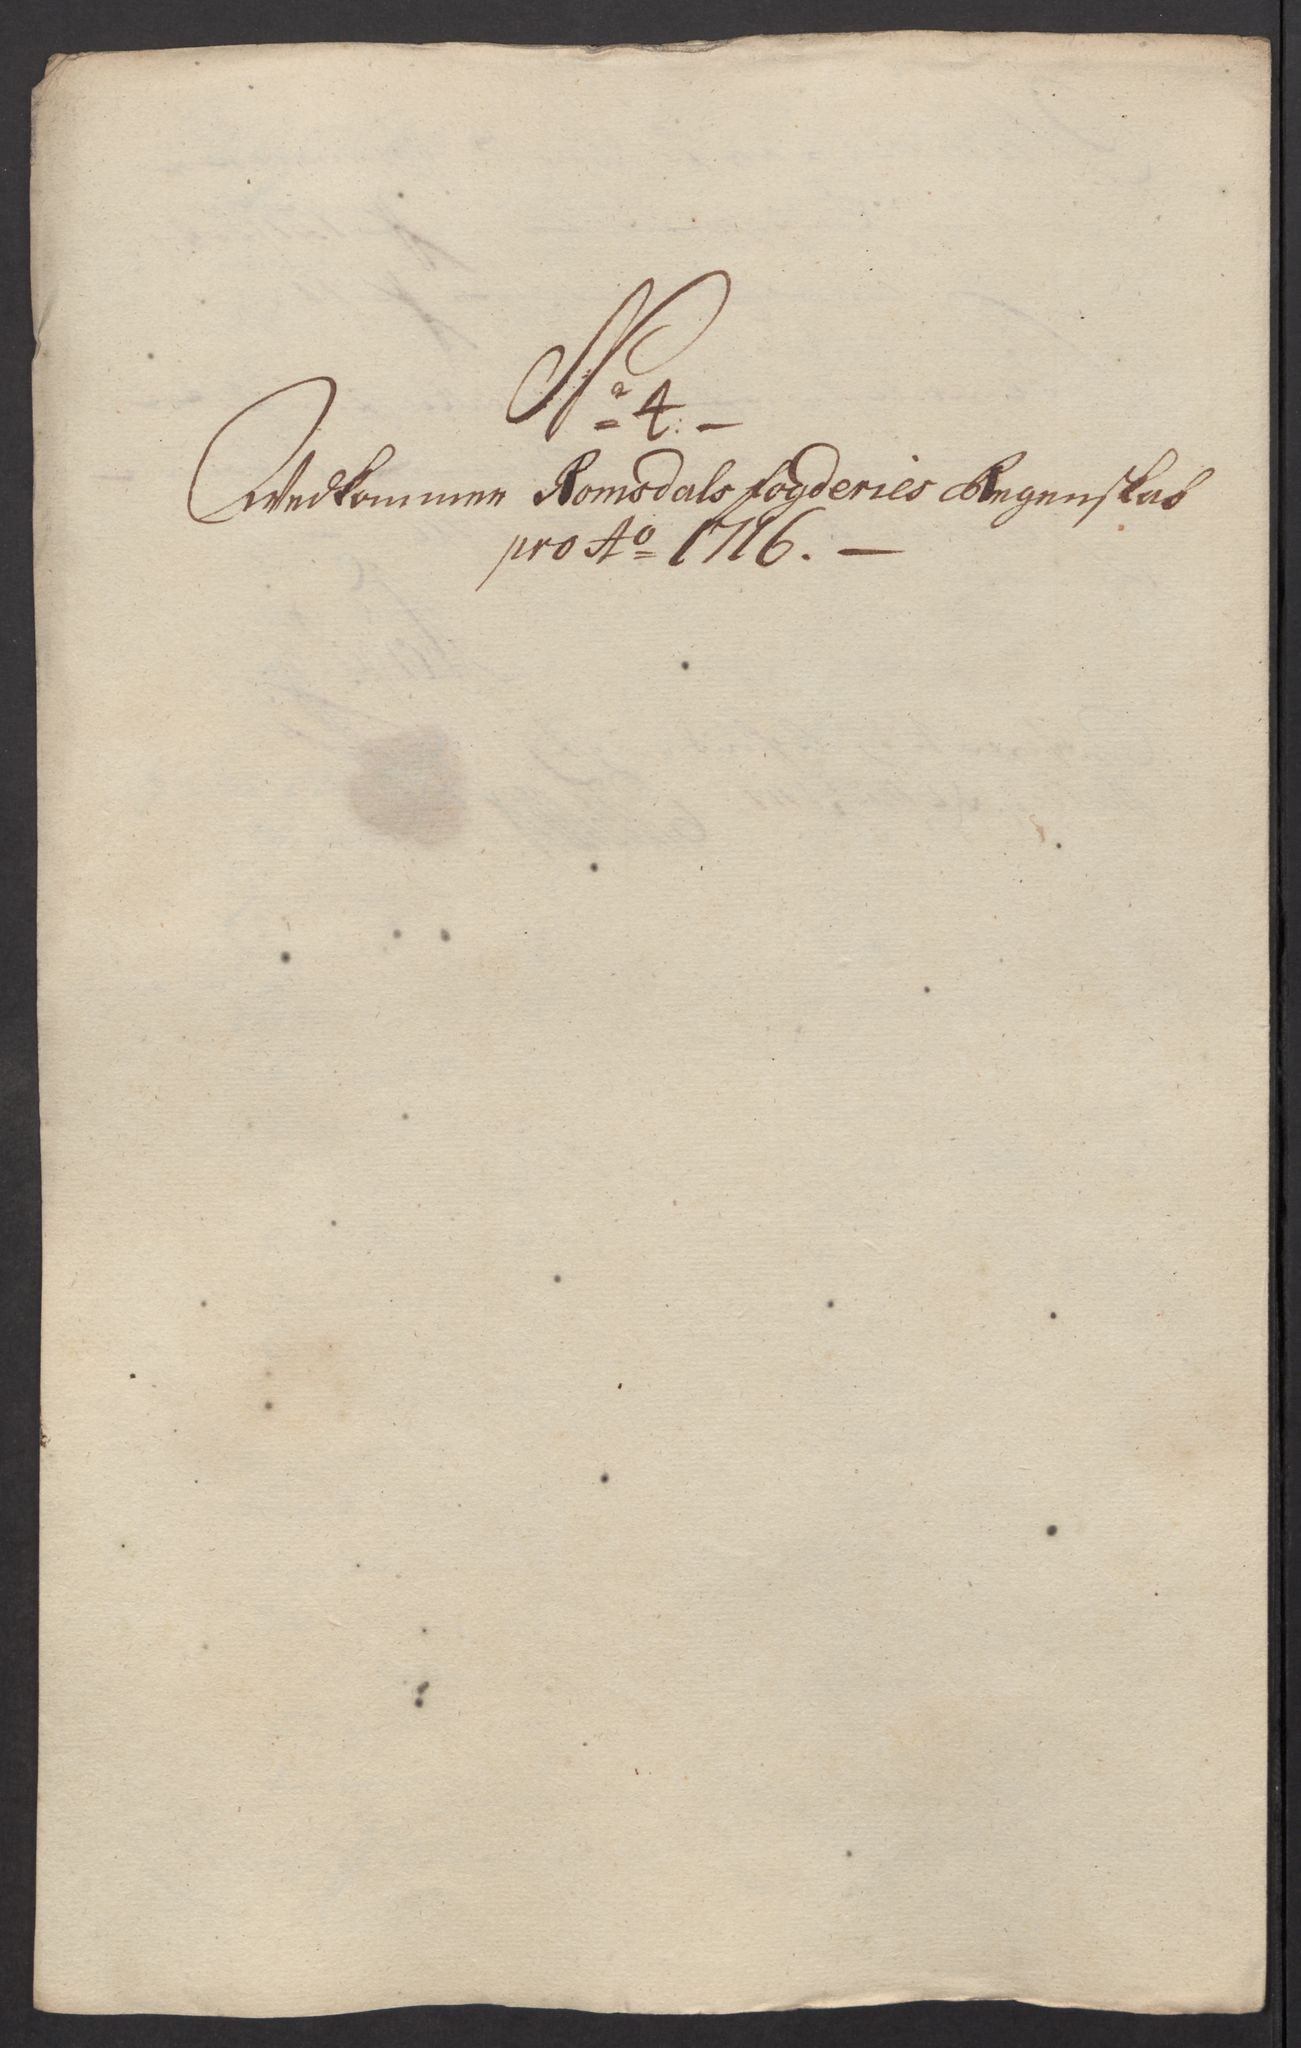 No 4.
Vedkommer Romsdals fogderies Regenskab
pro Ao 1716.